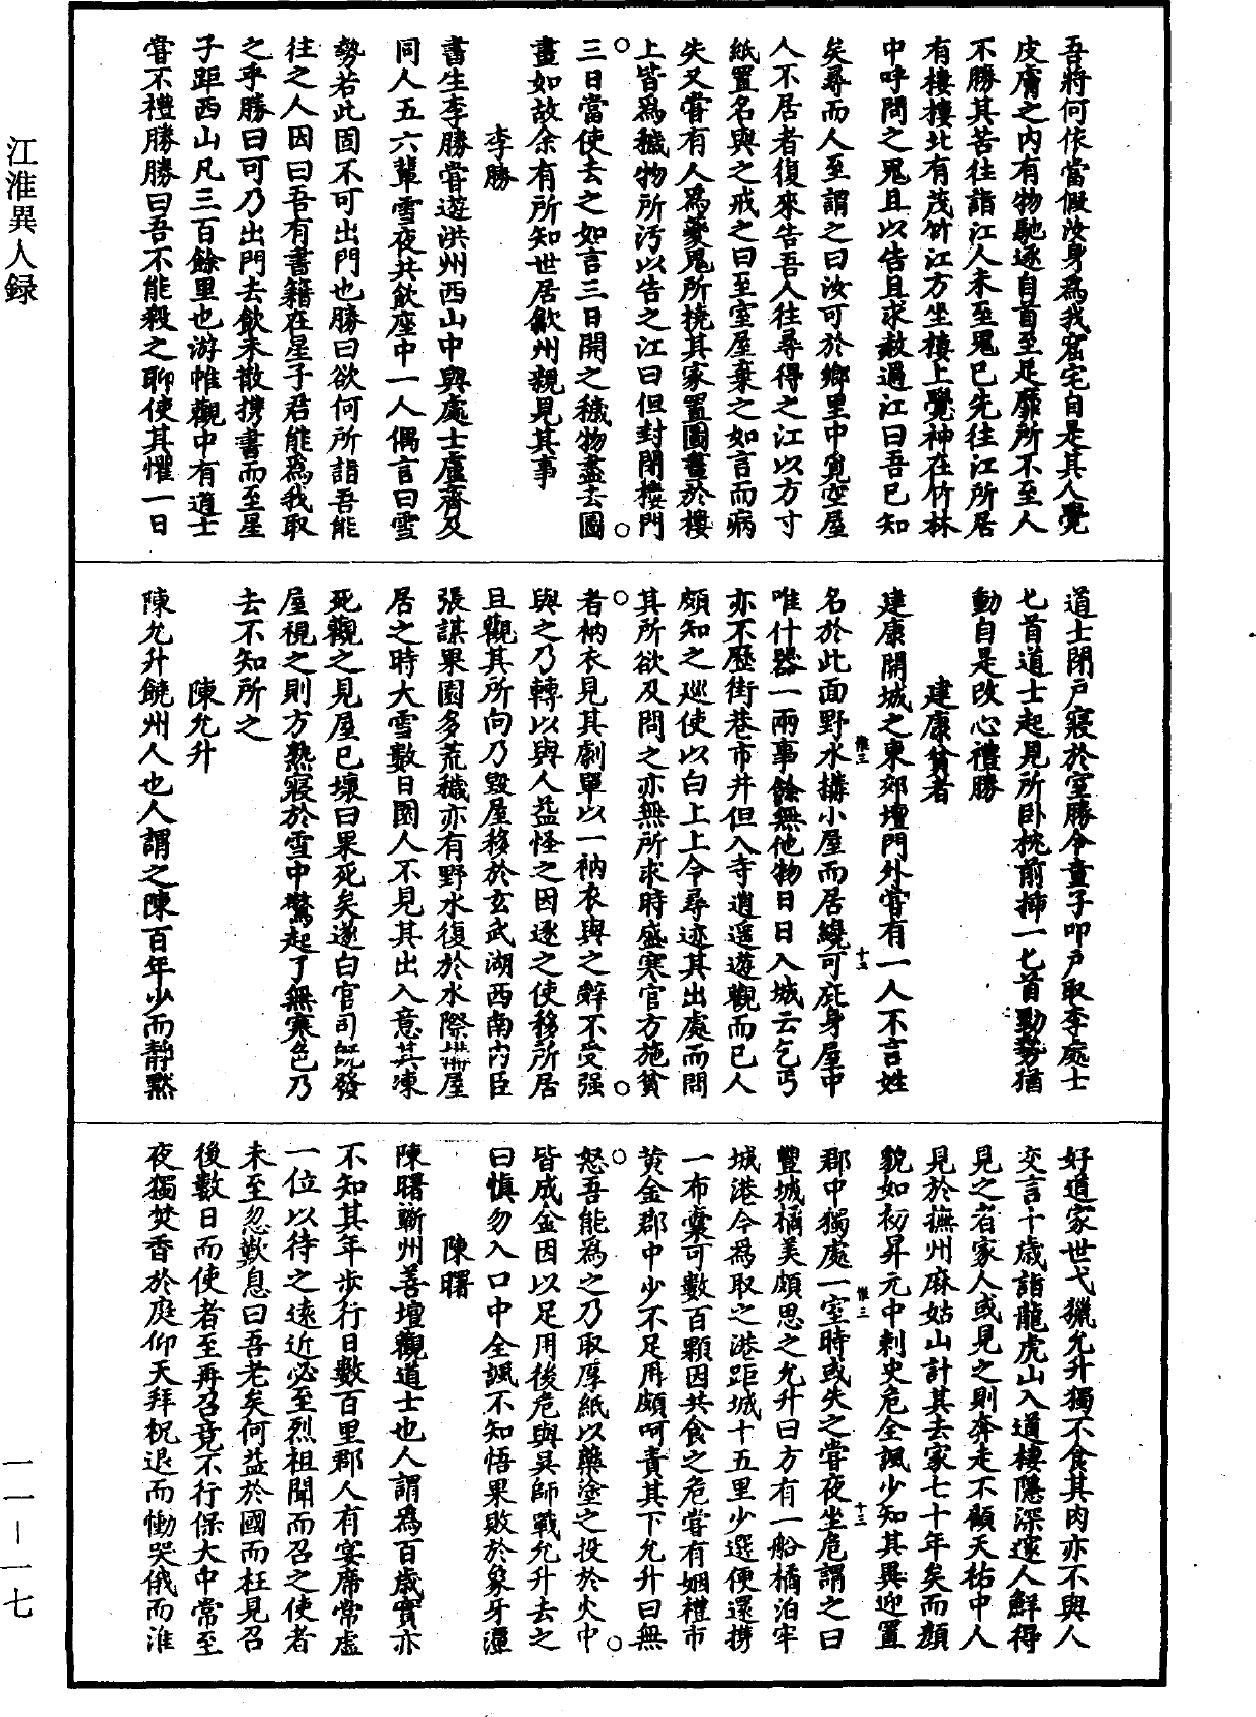 江淮異人録
一一－一七
吾將何依當假汝身爲我窟宅自是其人覺
皮膚之内有物馳逐自首至足靡所不至人
不勝其苦往詣江人未至鬼已先往江所居
有樓樓北有茂竹江方坐樓上覺神在竹林
中呼問之鬼且以告且求赦過江曰吾已知
矣尋而人至謂之曰汝可於鄉里中覓空屋
人不居者復來告吾人往尋得之江以方寸
紙置名與之戒之曰至室屋棄之如言而病
失又嘗有人爲夔鬼所撓其家置圖畫於樓
上皆爲穢物所汚以告之江曰但封閉樓門
三日當使去之如言三日開之穢物盡去圖
畫如故余有所知世居歙州親見其事
李勝
書生李勝嘗遊洪州西山中與處士盧齊及
同人五六輩雪夜共飲座中一人偶言曰雪
勢若此固不可出門也勝曰欲何所詣吾能
往之人因曰吾有書籍在星子君能爲我取
之乎勝曰可乃出門去飲未散携書而至星
子距西山凡三百餘里也游帷觀中有道士
嘗不禮勝勝曰吾不能殺之聊使其懼一日
道士閉戶寢於室勝令童子叩戶取李處士
匕首道士起見所卧枕前插一匕首勁勢猶
動自是改心禮勝
建康貧者
建康開城之東郊壇門外嘗有一人不言姓
名於此面野水構小屋而居纔可庇身屋中
唯什器一兩事餘無他物日日入城云乞丐
亦不歷街巷市井但入寺逍遥遊觀而已人
頗知之巡使以白上上令尋迹其出處而問
其所欲及問之亦無所求時盛寒官方施貧
者衲衣見其劇單以一衲衣與之辭不受强
與之乃轉以與人益怪之因逐之使移所居
且觀其所向乃毀屋移於玄武湖西南内臣
張謀果園多荒穢亦有野水復於水際構屋
居之時大雪數日園人不見其出入意其凍
死觀之見屋已壞曰果死矣遂白官司既發
屋視之則方熟寢於雪中驚起了無寒色乃
去不知所之
陳允升
陳允升饒州人也人謂之陳百年少而靜默
好道家世弋獵允升獨不食其肉亦不與人
交言十歲詣龍虎山入道棲隱深邃人鮮得
見之者家人或見之則奔走不顧天祐中人
見於撫州麻姑山計其去家七十年矣而顏
貌如初昇元中刺史危全諷少知其異迎置
郡中獨處一室時或失之嘗夜坐危謂之曰
豐城橘美頗思之允升曰方有一船橘泊牢
城港今爲取之港距城十五里少選便還携
一布囊可數百顆因共食之危嘗有姻禮市
黄金郡中少不足用頗呵責其下允升曰無
怒吾能爲之乃取厚紙以藥塗之投於火中
皆成金因以足用後危與吴師戰允升去之
曰慎勿入口中全諷不知悟果敗於象牙潭
陳曙
陳曙蘄州善壇觀道士也人謂爲百歲實亦
不知其年歩行日數百里郡人有宴席常虛
一位以待之遠近必至烈祖聞而召之使者
未至忽歎息曰吾老矣何益於國而枉見召
後數日而使者至再召竟不行保大中常至
夜獨焚香於庭仰天拜祝退而慟哭俄而淮